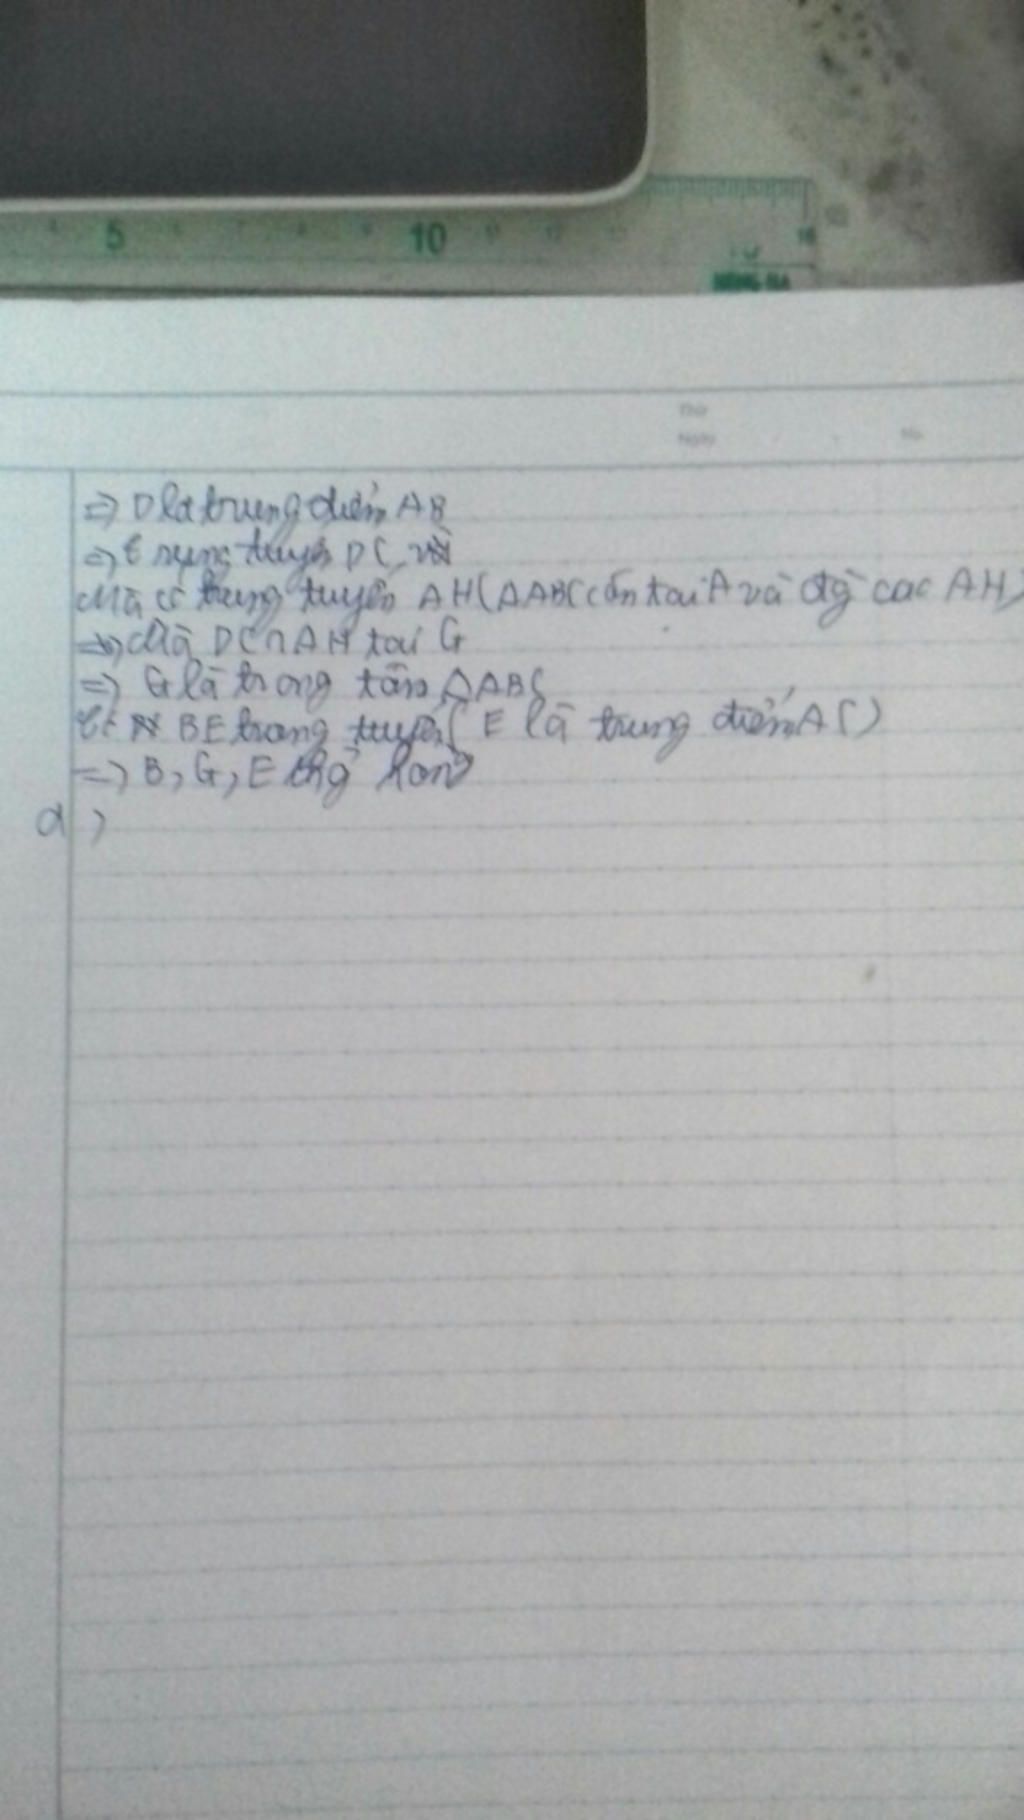 5 10
Thứ
Ngày No.
=> D là trung điểm AB
=> trung tuyến DC
Mà có trung tuyến AH (ΔABC cân tại A và đg cao AH)
=> Mà DC ∩ AH tại G
=> G là trong tâm ΔABC
BE trung tuyến ( E là trung điểm AC)
=> B, G, E thg hàng
d)